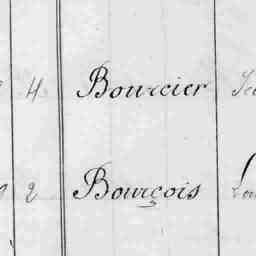 4 Bourcier
2 Bourçois